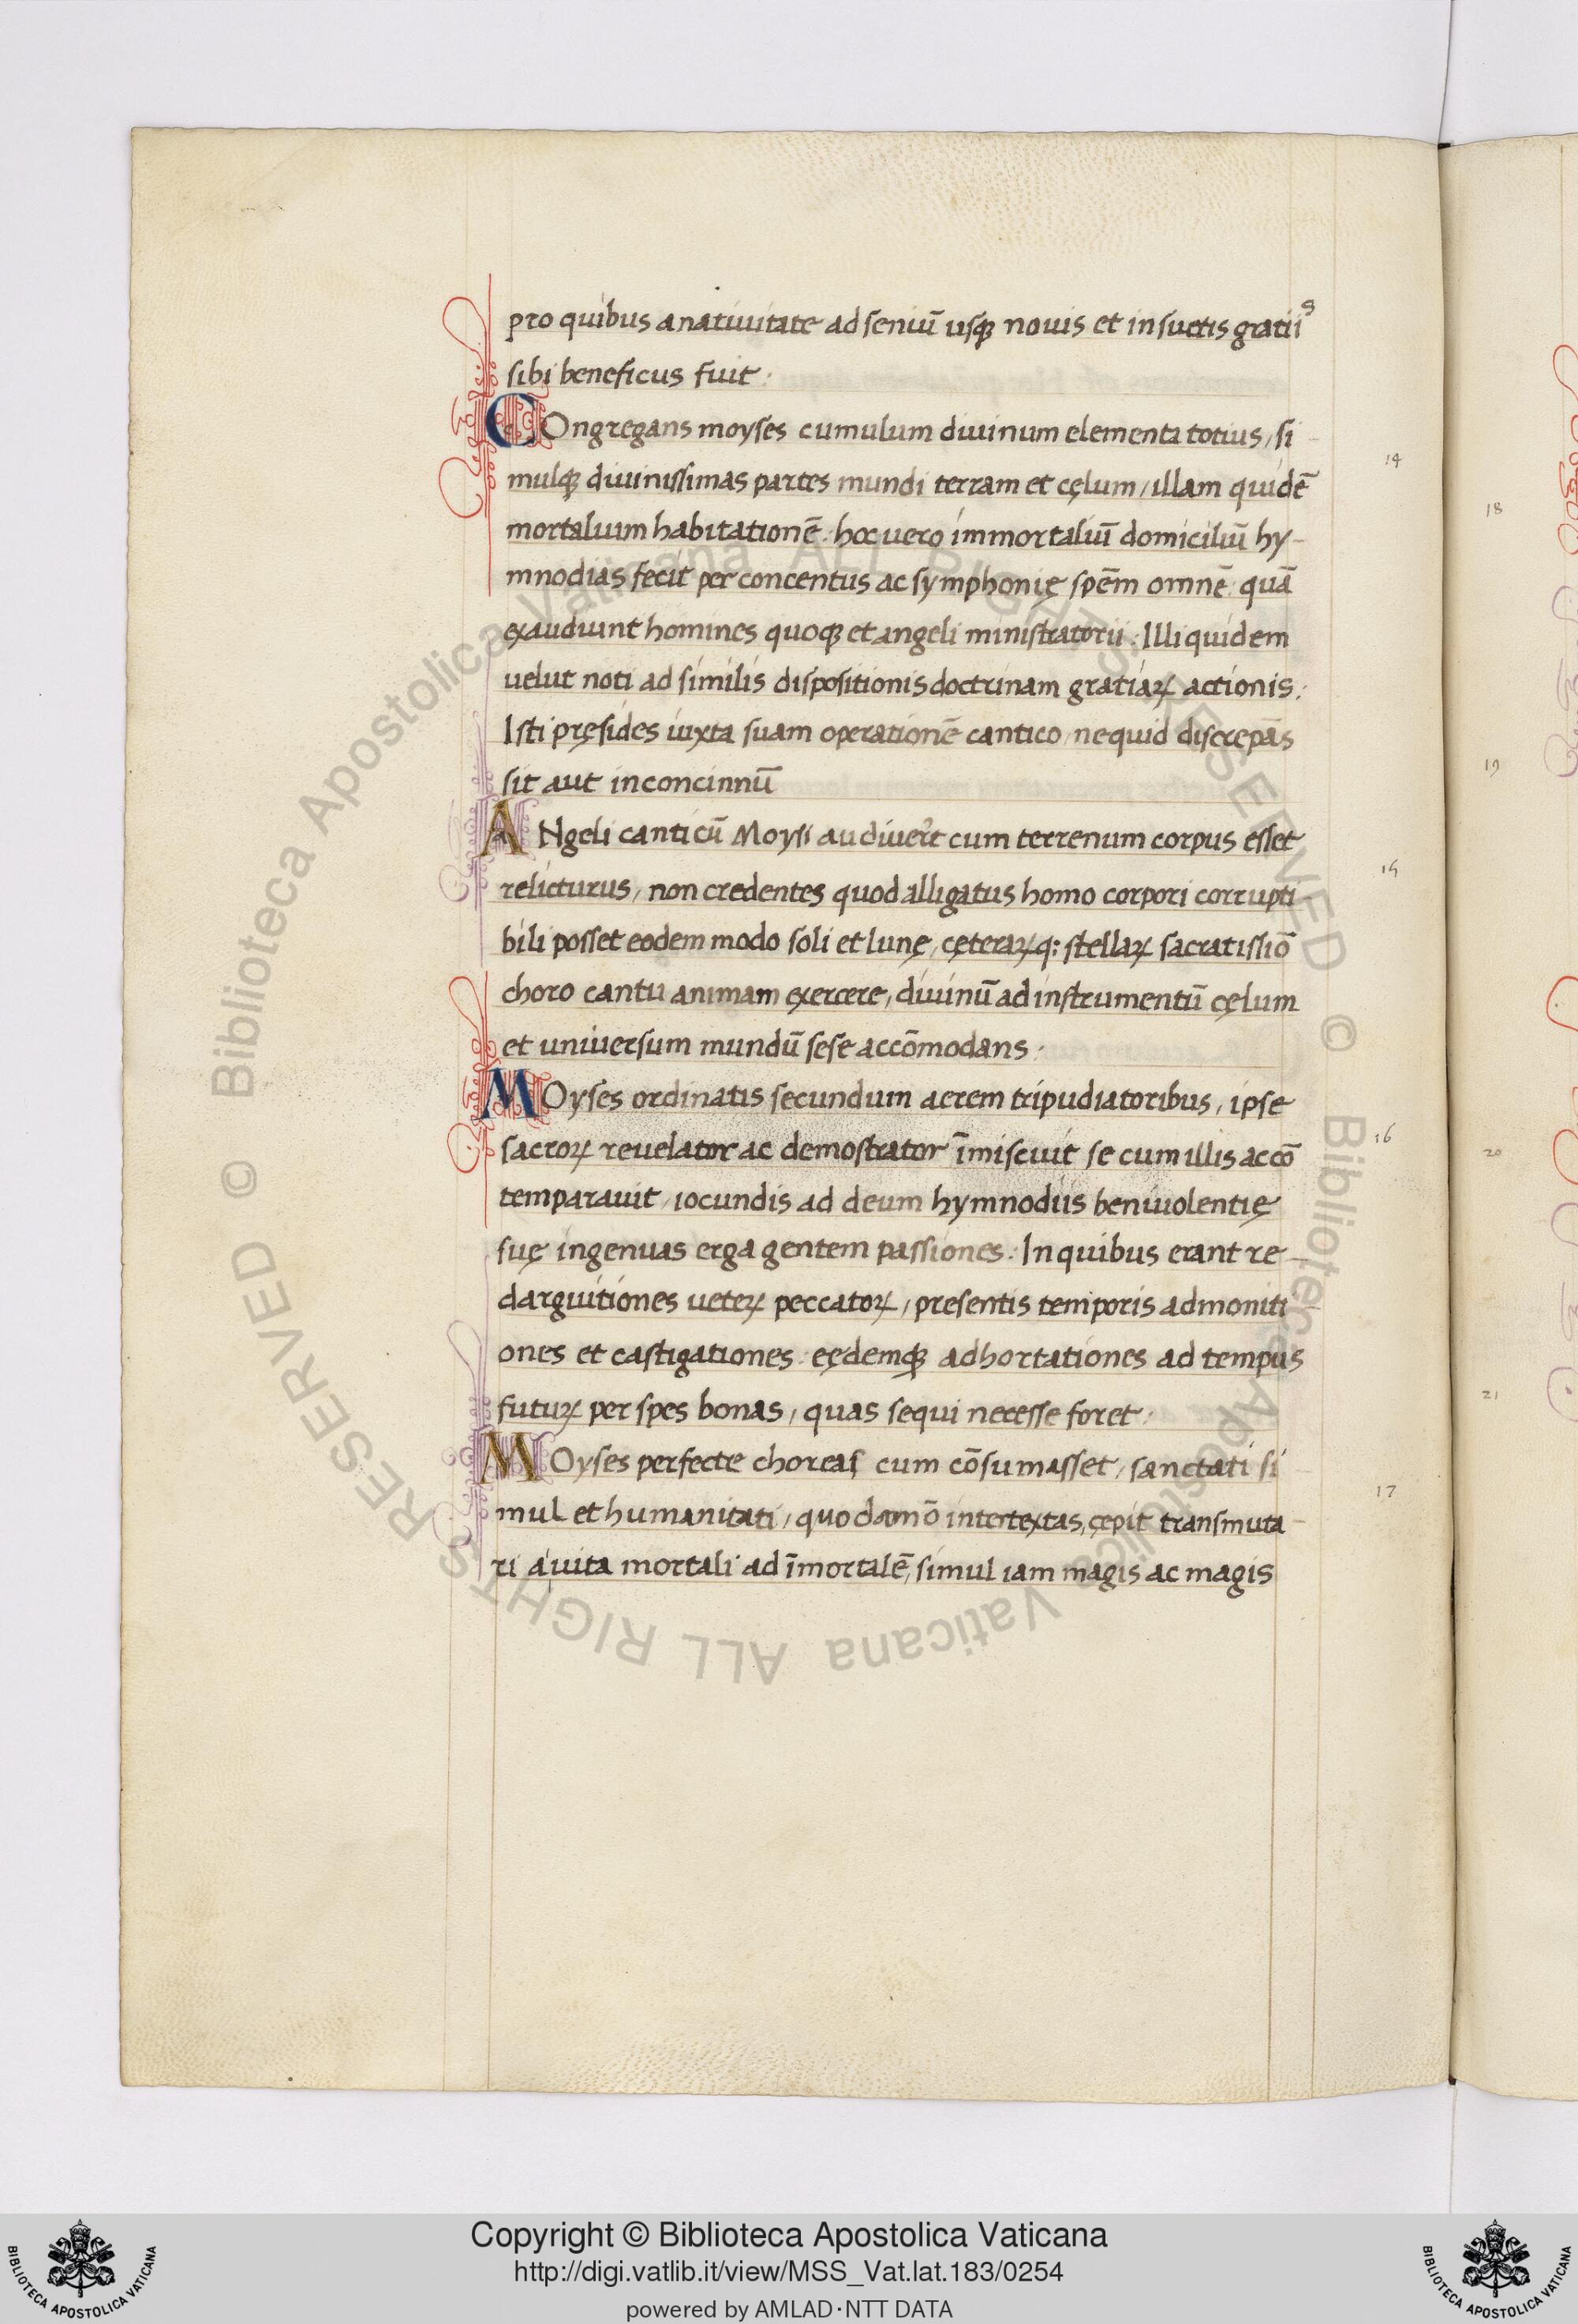 pro quibus a natiuitate ad seniū usqꝫ nouis et insuetis gratiis
sibi beneficus fuit.
COngregans moyses cumulum diuinum elementa totius, si-
mulqꝫ diuinissimas partes mundi terram et cęlum, illam quidē
mortalium habitationē. hoc uero immortaliū domiciliū hy-
mnodias fecit per concentus ac symphonię spēm omnē quā
exaudiunt homines quoqꝫ et angeli ministratorii. Illi quidem
uelut noti ad similis dispositionis doctrinam gratiaꝝ actionis:
Isti pręsides iuxta suam operationē cantico, nequid discrepās
sit aut inconcinnū
ANgeli canticū Moysi audiuer̄t cum terrenum corpus esset
relicturus, non credentes quod alligatus homo corpori corrupti-
bili posset eodem modo soli et lunę, cęteraꝝq: stellaꝝ sacratissiō
choro cantu animam exercere, diuinū ad instrumentū cęlum
et uniuersum mundū sese accōmodans.
MOyses ordinatis secundum aerem tripudiatoribus, ipse
sacroꝝ reuelator ac demostrator īmiscuit se cum illis accō
temparauit, iocundis ad deum hymnodiis beniuolentię
suę ingenuas erga gentem passiones. In quibus erant re-
darguitiones ueteꝝ peccatoꝝ, presentis temporis admoniti-
ones et castigationes. eędemqꝫ adhortationes ad tempus
futuꝝ per spes bonas, quas sequi necesse foret.
MOyses perfecte choreas cum cōsumasset, sanctati si-
mul et humanitati, quodāmō intertextas, cępit transmuta-
ri a uita mortali ad īmortalē, simul iam magis ac magis
14
15
16
17
18
19
20
21
© Biblioteca Apostolica Vaticana ALL RIGHTS RESERVED © Biblioteca Apostolica Vaticana ALL RIGHTS RESERVED
Copyright © Biblioteca Apostolica Vaticana
http://digi.vatlib.it/view/MSS_Vat.lat.183/0254
powered by AMLAD·NTT DATA
BIBLIOTECA APOSTOLICA VATICANA
BIBLIOTECA APOSTOLICA VATICANA